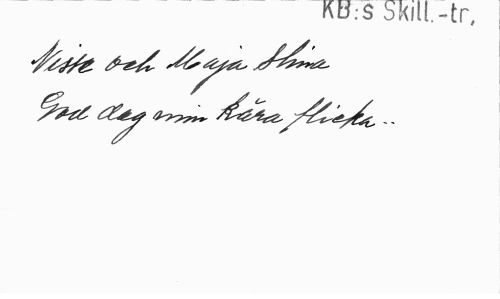 KB:s Skill.-tr,
Nisse och Maja Stina
God dag min kära flicka..